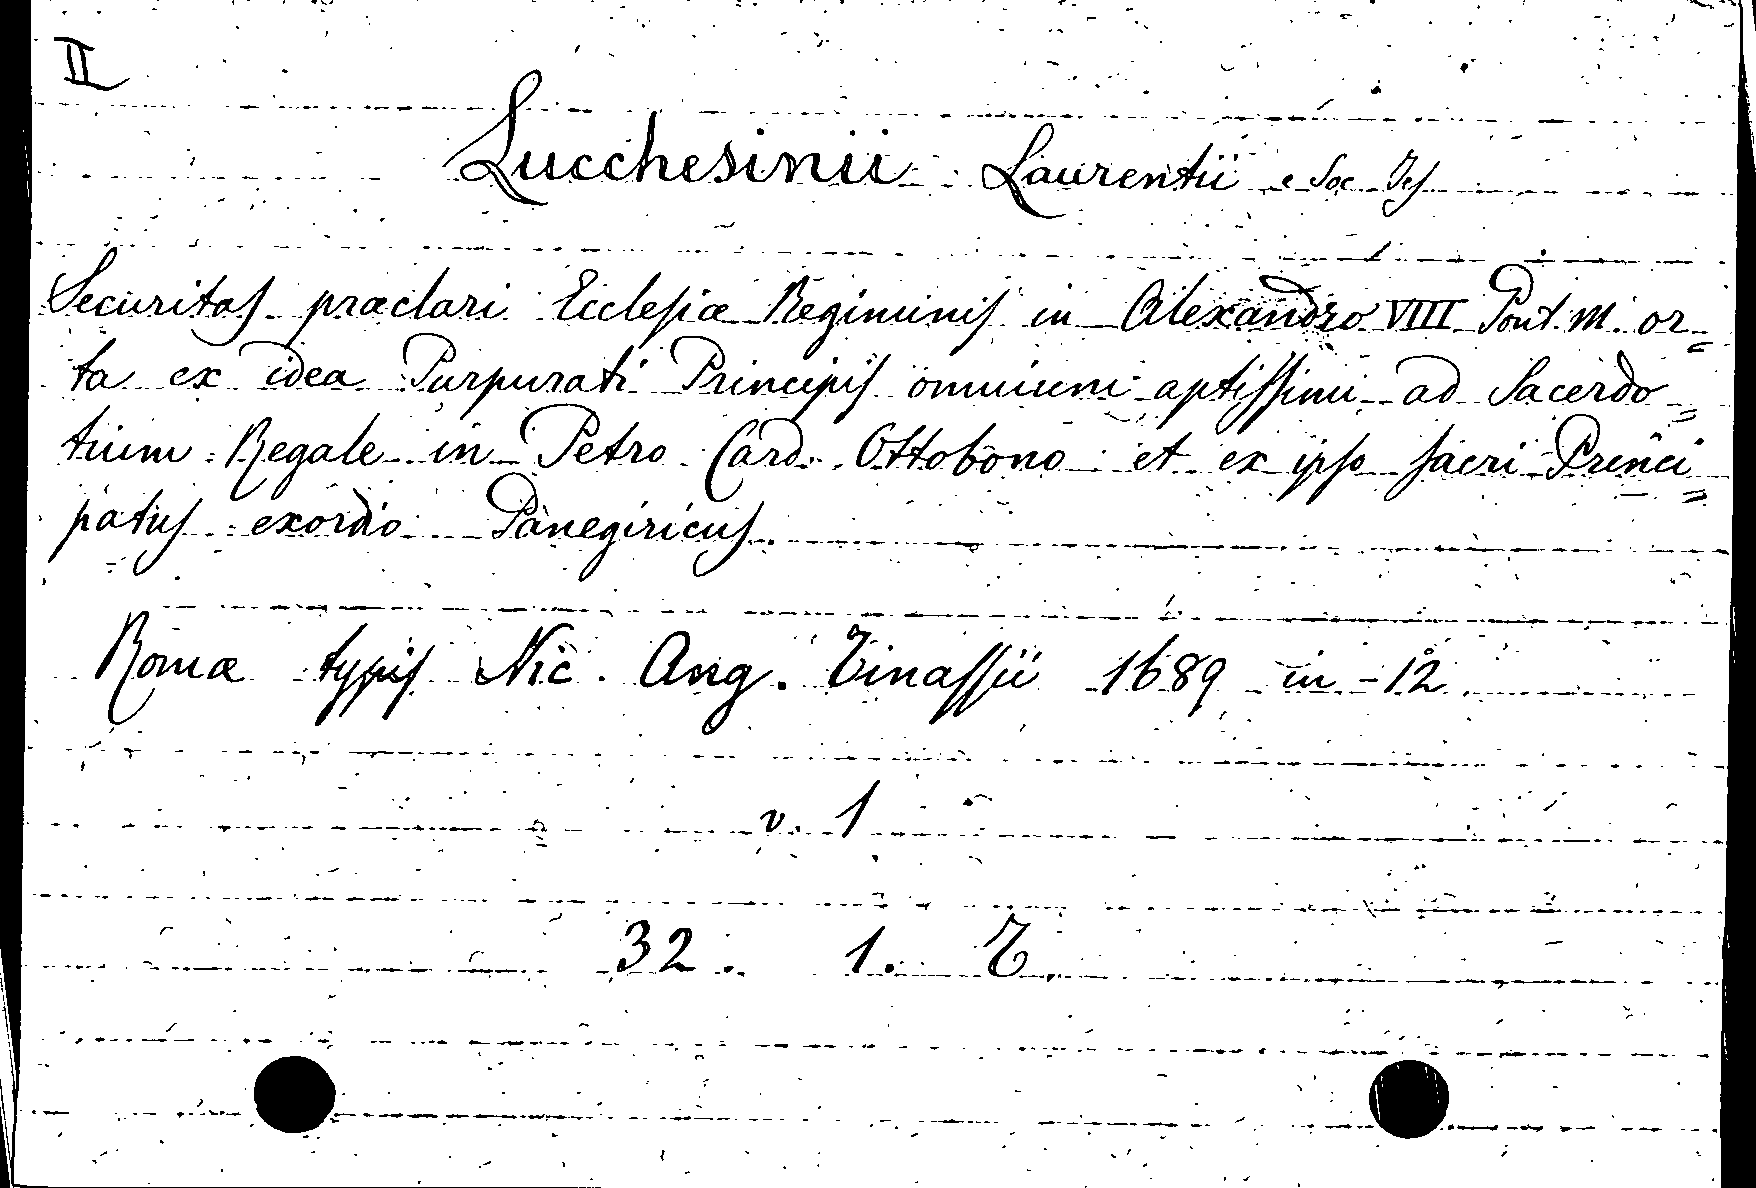 II
Lucchesinii Laurentii e Soc Jes
Securitas præclari Ecclesiæ Regiminis in Alexandro VIII Pont. M. or=
ta ex idea Purpurati Principis omnium aptissimi ad Sacerdo=
tium Regale in Petro Card. Ottobono et ex ipso sacri Princi=
patus exordio Panegiricus.
Romæ typis Nic. Ang. Tinassii 1689 in-12
v. 1
32. 1. T